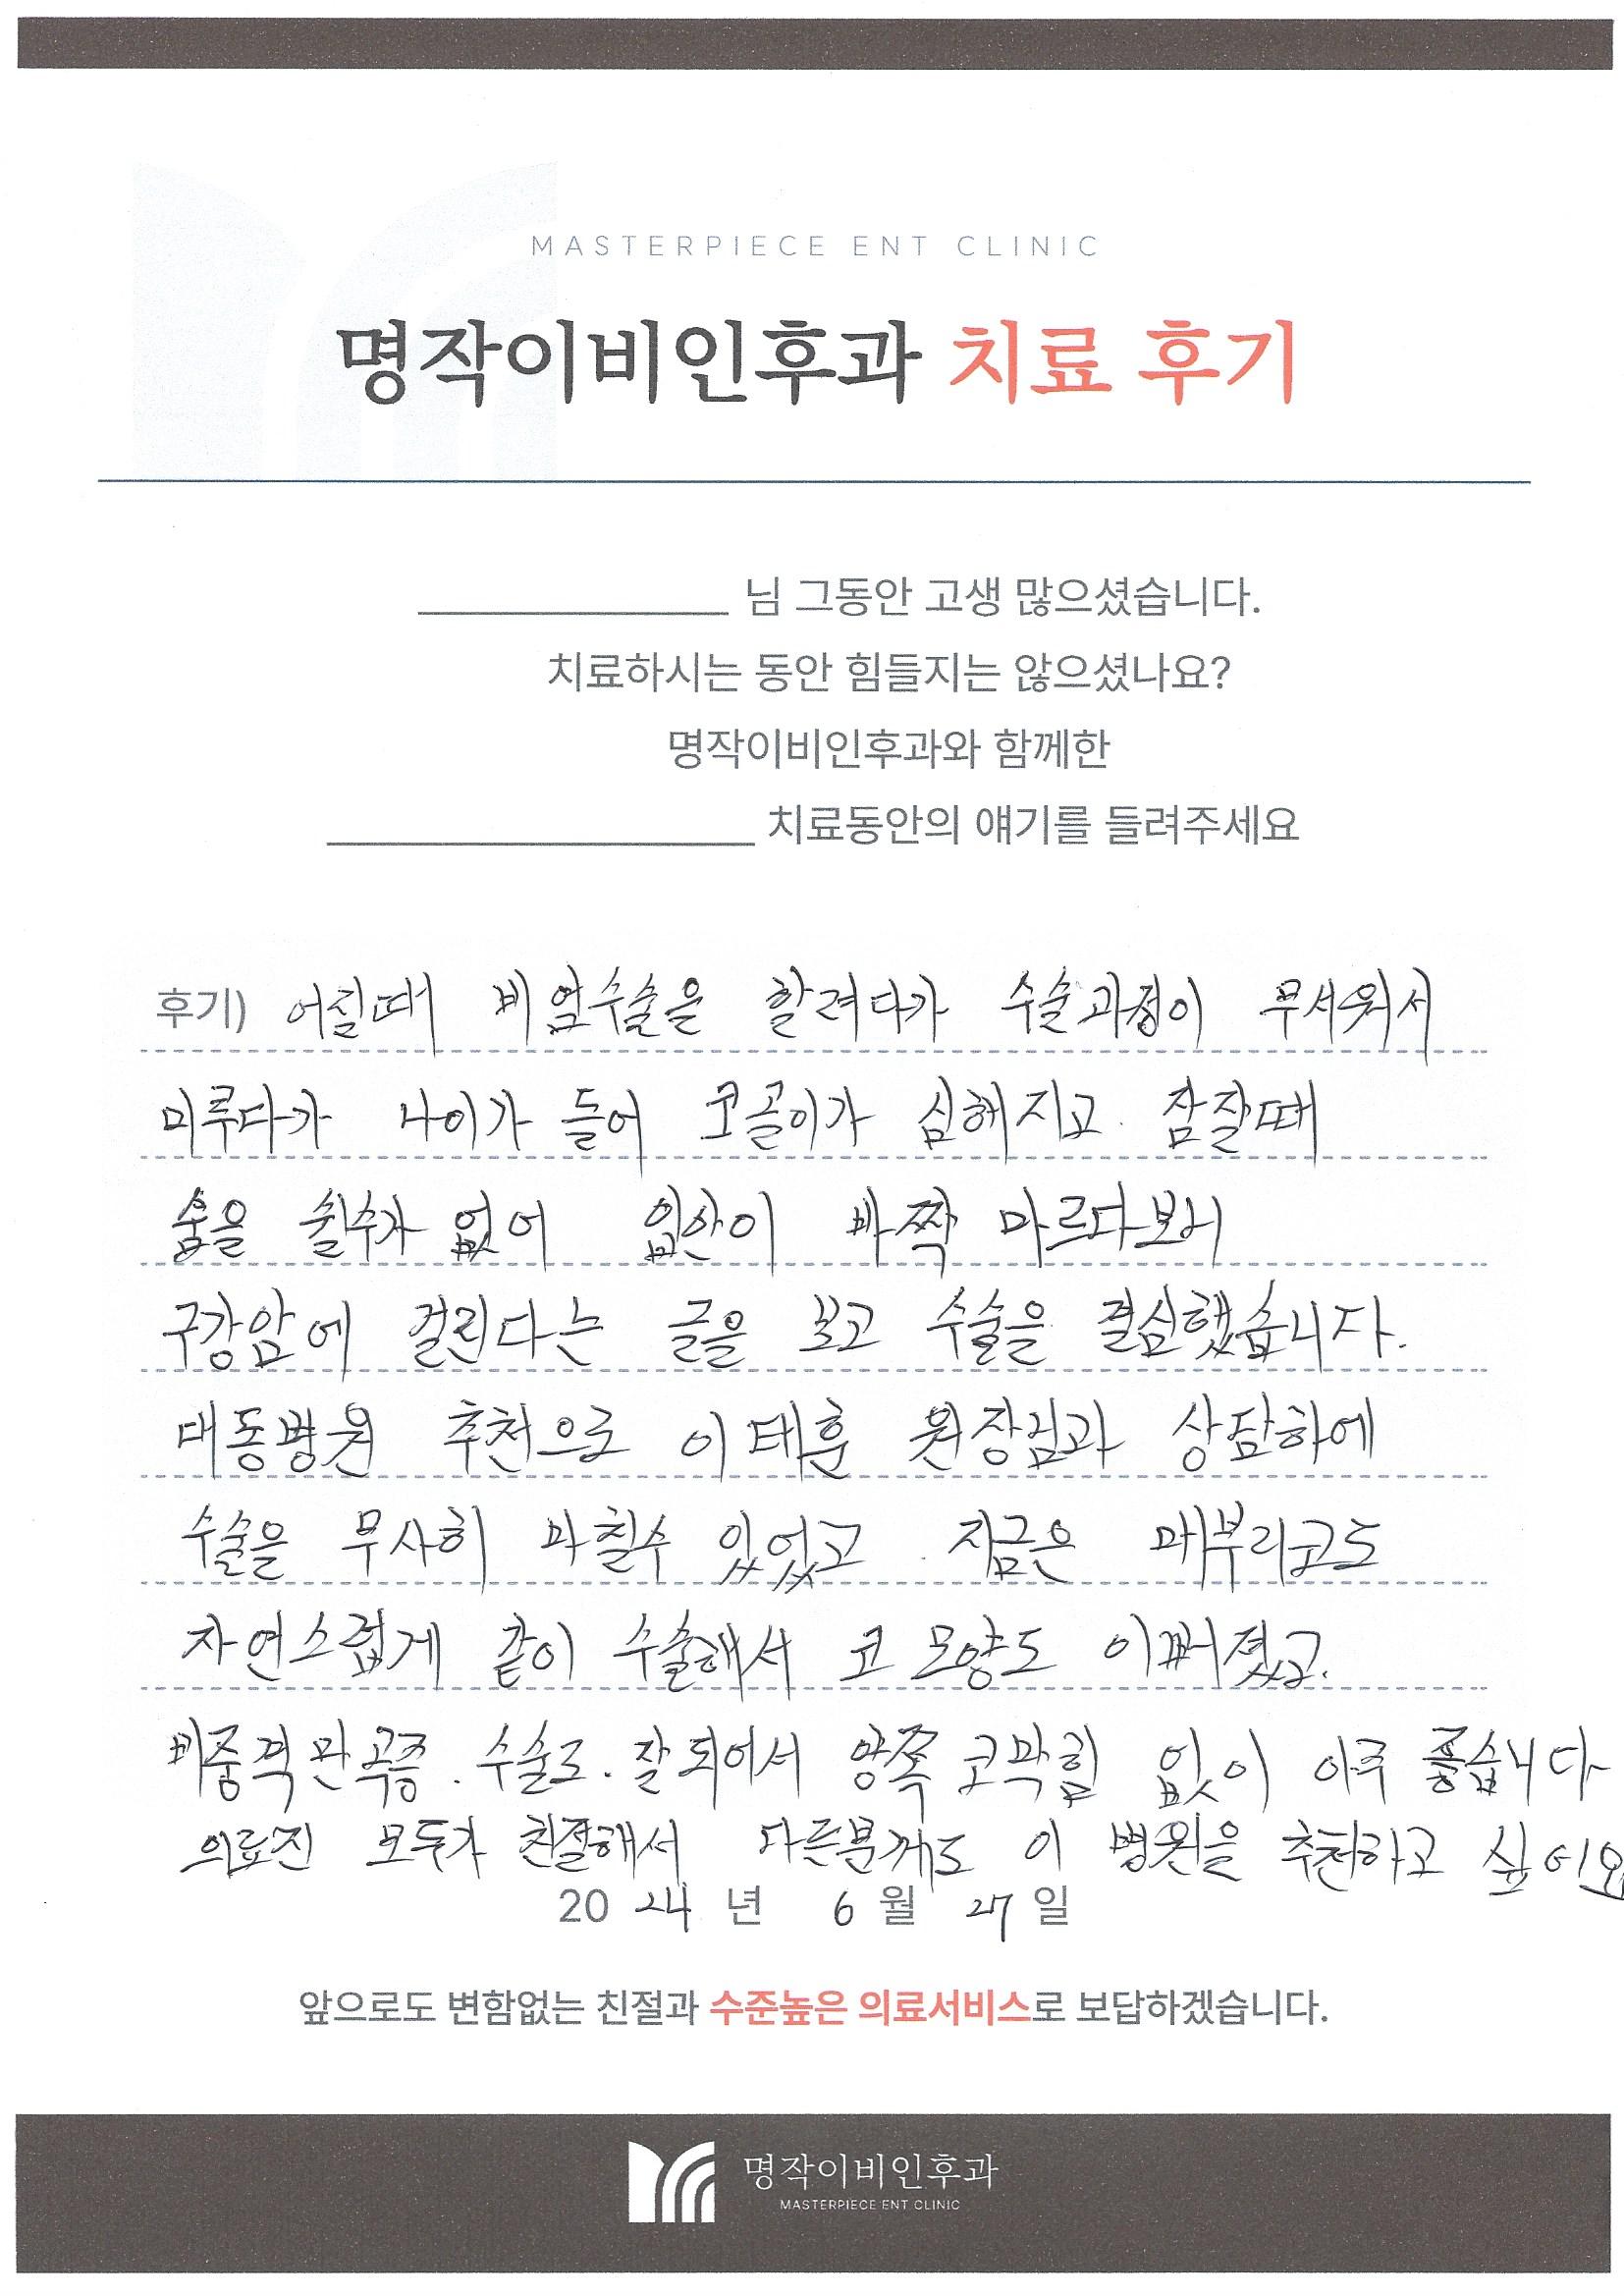 MASTERPIECE ENT CLINIC
명작이비인후과 치료 후기
님 그동안 고생 많으셨습니다.
치료하시는 동안 힘들지는 않으셨나요?
명작이비인후과와 함께한
치료동안의 얘기를 들려주세요
후기) 어릴때 비염수술을 할려다가 수술과정이 무서워서
미루다가 나이가 들어 코골이가 심해지고 잠잘때
숨을 쉴수가 없어 입안이 바짝 마르다보니
구강암에 걸린다는 글을 보고 수술을 결심했습니다.
대동병원 추천으로 이태훈 원장님과 상담하에
수술을 무사히 마칠수 있었고 지금은 매부리코도
자연스럽게 같이 수술해서 코 모양도 이뻐졌고.
비중격만곡증. 수술도. 잘되어서 양쪽 코막힘 없이 아주 좋습니다
의료진 모두가 친절해서 다른분께도 이 병원을 추천하고 싶어요
2024 년 6 월 27 일
앞으로도 변함없는 친절과 수준높은 의료서비스로 보답하겠습니다.
명작이비인후과
MASTERPIECE ENT CLINIC